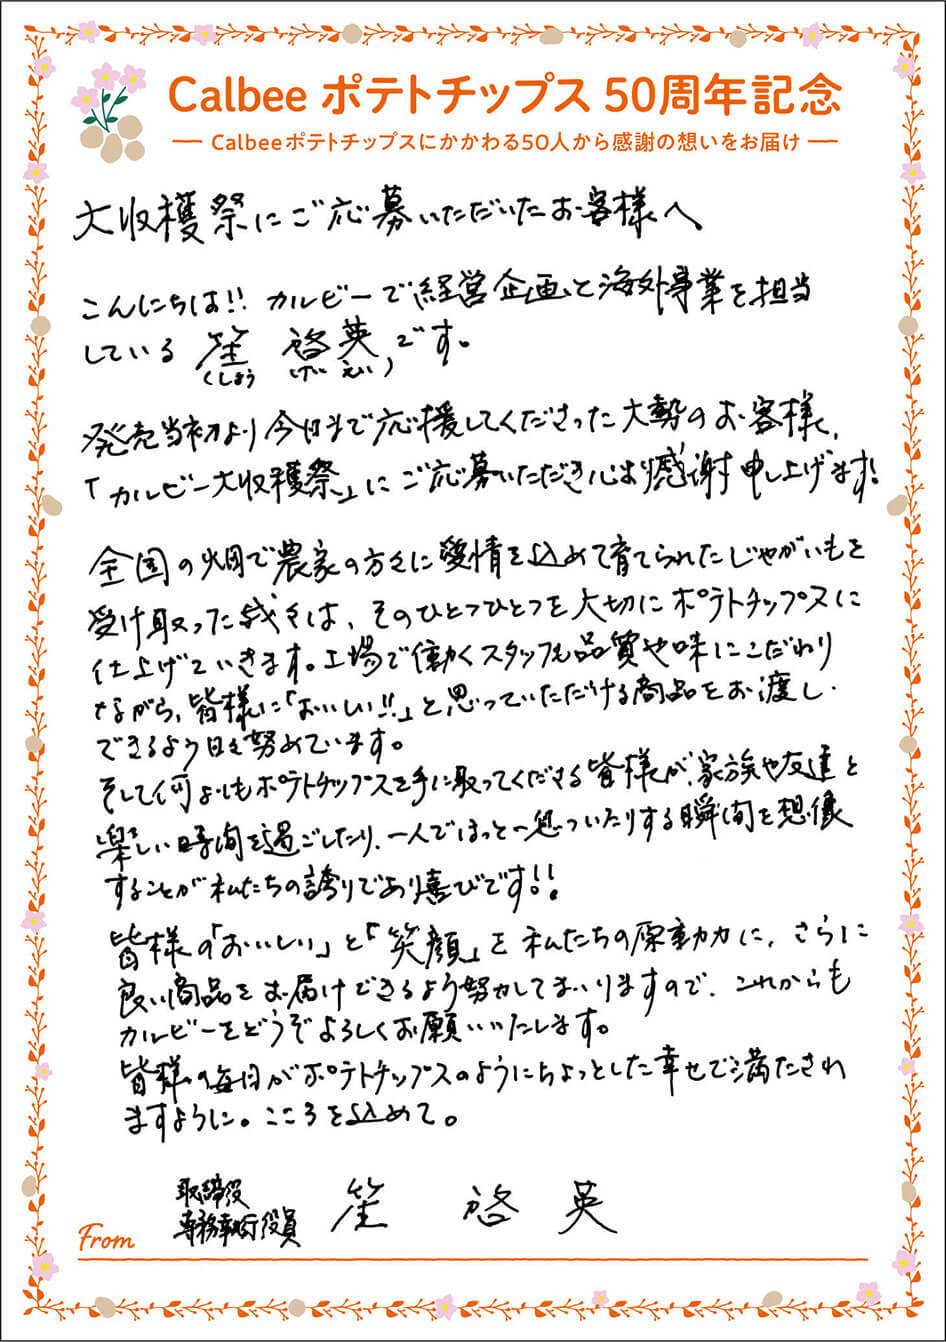 Calbee ポテトチップス 50周年記念
Calbeeポテトチップスにかかわる50人から感謝の想いをお届け
大収穫祭にご応募いただいたお客様へ
こんにちは!! カルビーで経営企画と海外事業を担当
している 笙 啓英 です。
(しょう けい えい)
発売当初より今日まで応援してくださった大勢のお客様、
「カルビー大収穫祭」にご応募いただき心より感謝申し上げます!
全国の畑で農家の方々に愛情を込めて育てられたじゃがいもを
受け取った我々は、そのひとつひとつを大切にポテトチップスに
仕上げていきます。工場で働くスタッフも品質や味にこだわり
ながら、皆様に「おいしい!!」と思っていただける商品をお渡し
できるよう日々努めています。
そして何よりもポテトチップスを手に取ってくださる皆様が、家族や友達と
楽しい時間を過ごしたり、一人でほっと一息ついたりする瞬間を想像
することが私たちの誇りであり喜びです!!
皆様の「おいしい」と「笑顔」を私たちの原動力に、さらに
良い商品をお届けできるよう努力してまいりますので、これからも
カルビーをどうぞよろしくお願いいたします。
皆様の毎日がポテトチップスのようにちょっとした幸せで満たされ
ますように。こころを込めて。
取締役
専務執行役員 笙 啓英
From